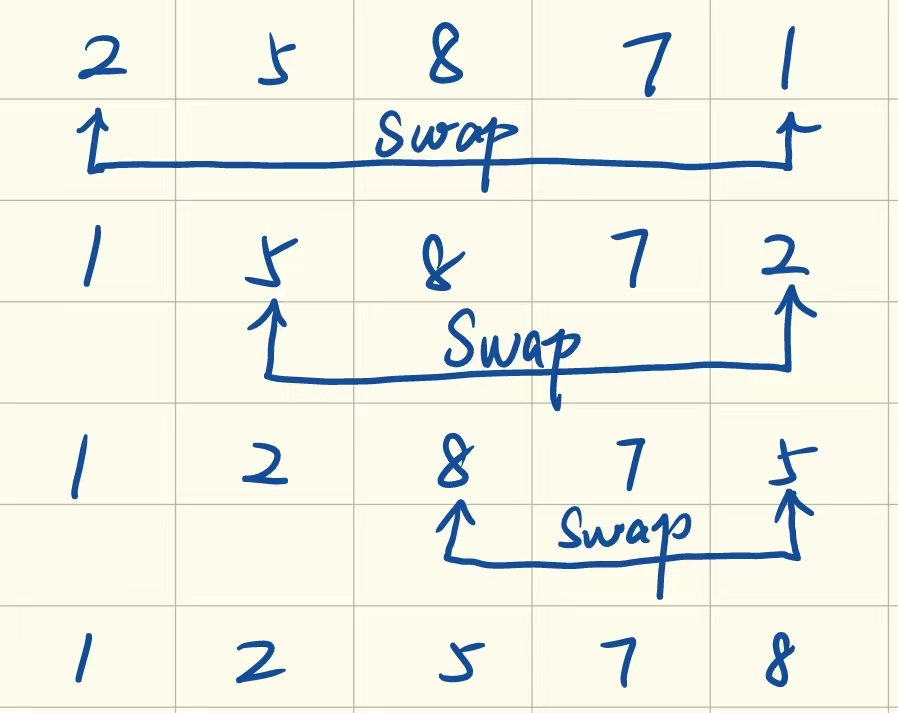 2 5 8 7 1
Swap
1 5 8 7 2
Swap
1 2 8 7 5
Swap
1 2 5 7 8